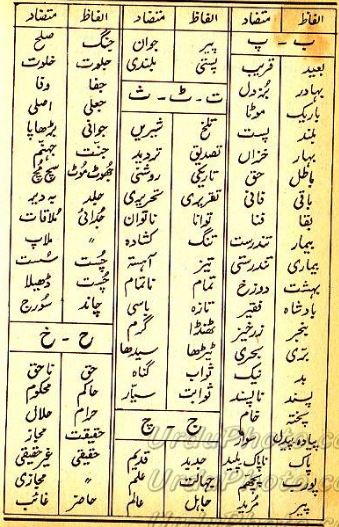 الفاظ متضاد
ب - پ
بعید قریب
بہادر بُزدل
باریک موٹا
بلند پست
بہار خزاں
باطل حق
باقی فانی
بقا فنا
بیمار تندرست
بیماری تندرستی
بہشت دوزخ
بادشاہ فقیر
بنجر زرخیز
بَری بحری
بد نیک
پسند ناپسند
پختہ خام
پیادہ پیدل سوار
پاک ناپاک پلید
پورب پچھم
پیر مُرید
الفاظ متضاد
پیر جوان
پستی بلندی
ت - ٹ - ث
تلخ شیریں
تصدیق تردید
تاریکی روشنی
تقریری تحریری
توانا ناتواں
تنگ کشادہ
تیز آہستہ
تمام ناتمام
تازہ باسی
ٹھنڈا گرم
ٹیڑھا سیدھا
ثواب گناہ
ثوابت سیّار
ج - چ
جدید قدیم
جہالت علم
جاہل عالم
الفاظ متضاد
جنگ صلح
جلوت خلوت
جفا وفا
جعلی اصلی
جوانی بڑھاپا
جنّت جہنّم
جُھوٹ مُوٹ سچ مُچ
جلد بہ دیر
جُدائی مُلاقات
〃 ملاپ
چُست سُست
چُست ڈھیلا
چاند سُورج
ح - خ
حق ناحق
حاکم محکوم
حرام حلال
حقیقت مجاز
حقیقی غیر حقیقی
〃 مجازی
حاضر غائب
UrduPhoto.com